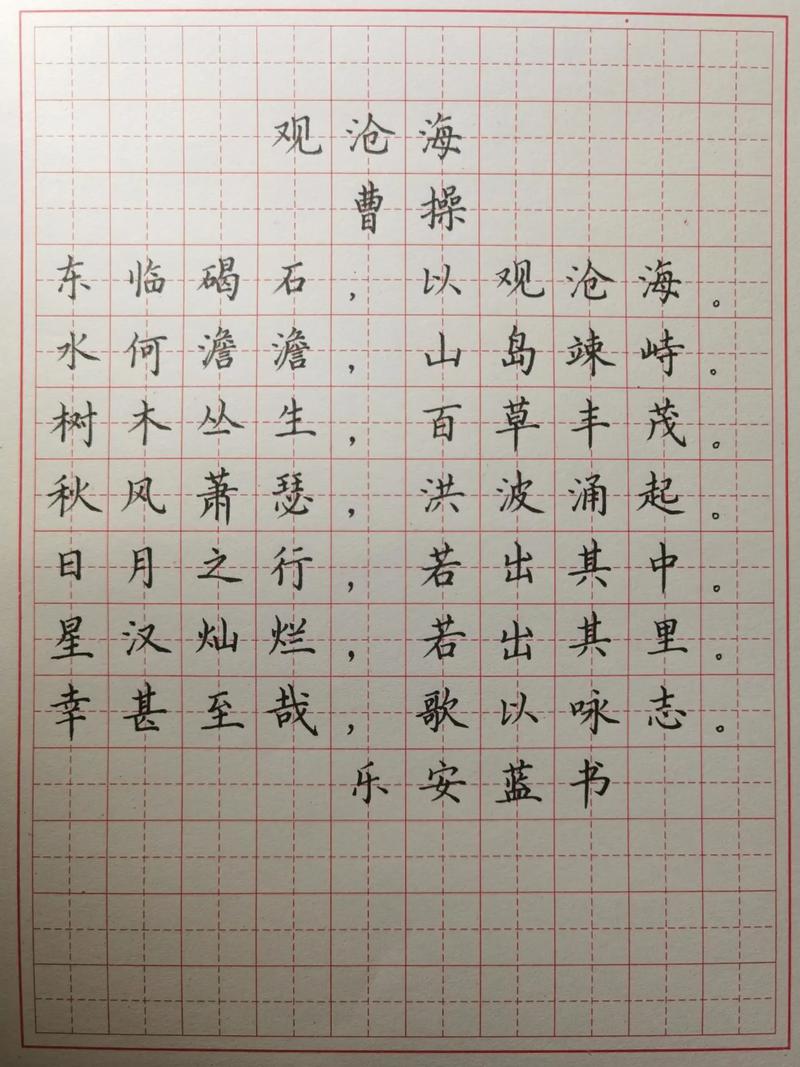 观沧海
曹操
东临碣石，以观沧海。
水何澹澹，山岛竦峙。
树木丛生，百草丰茂。
秋风萧瑟，洪波涌起。
日月之行，若出其中。
星汉灿烂，若出其里。
幸甚至哉，歌以咏志。
乐安蓝书